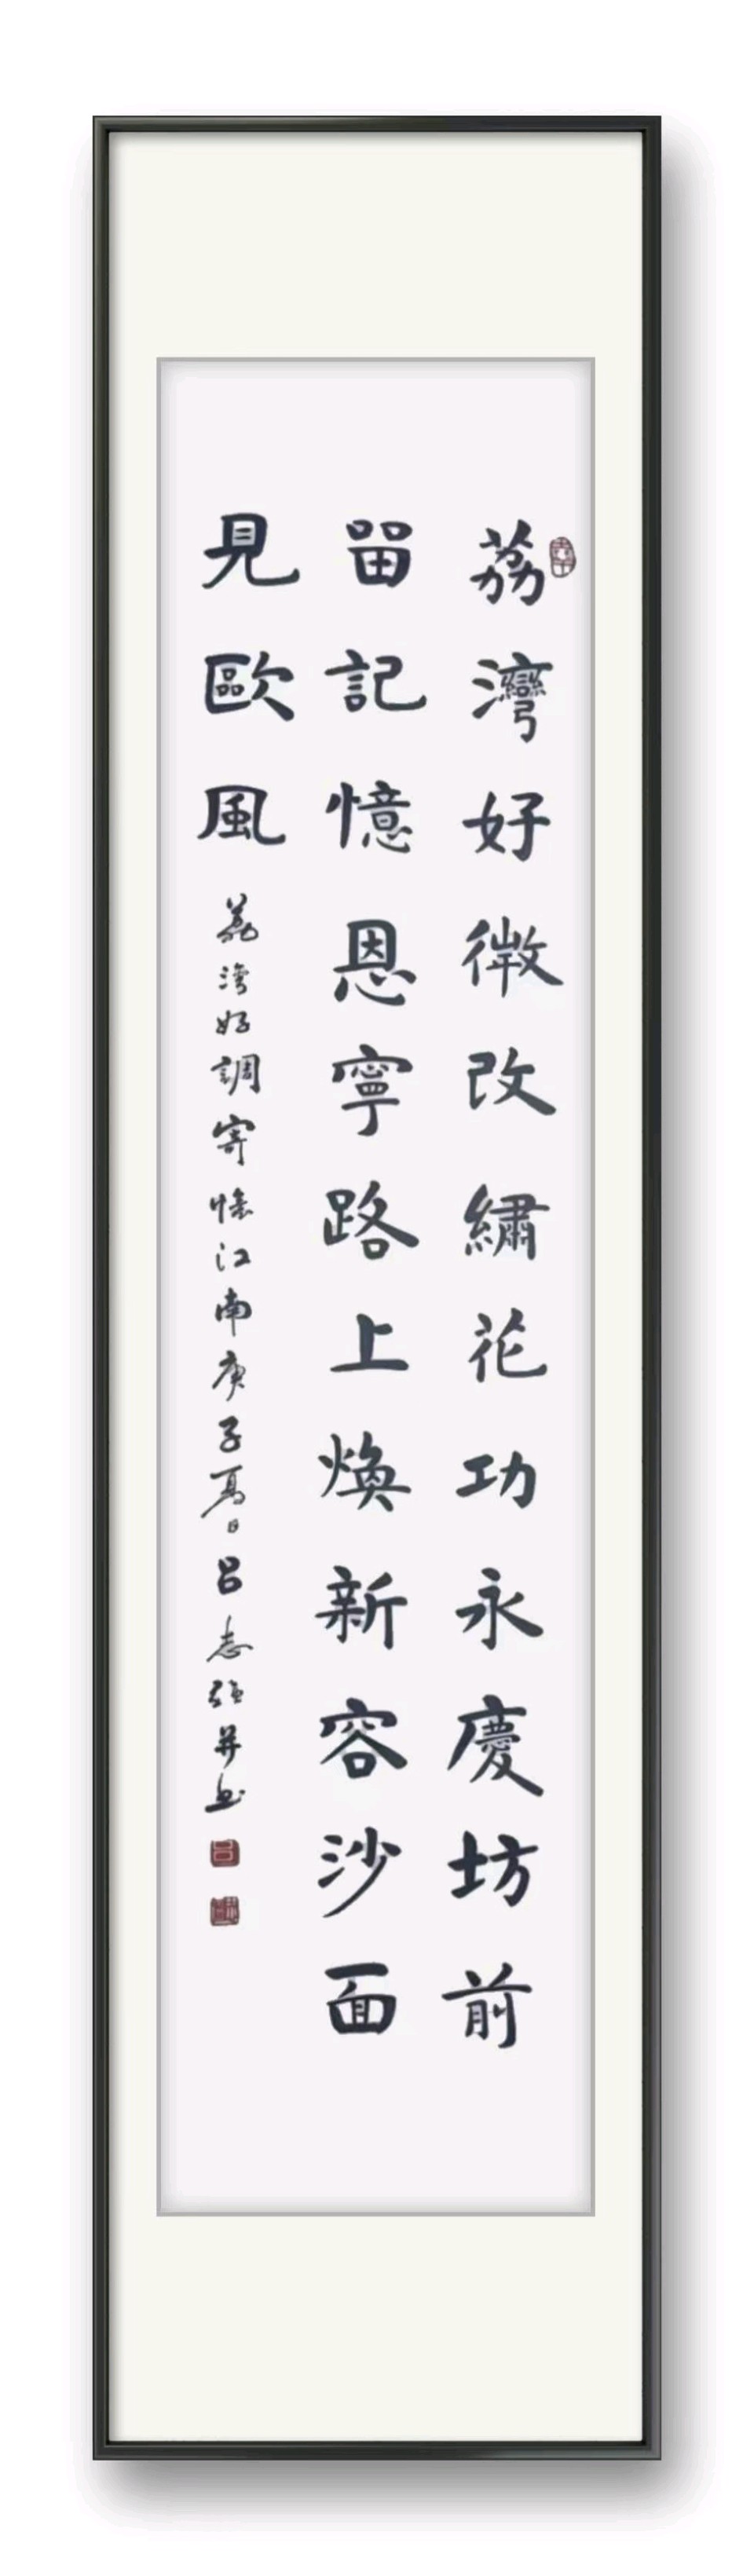 荔灣好微改繡花功永慶坊前
留記憶恩寧路上煥新容沙面
見歐風
荔灣好調寄憶江南庚子夏日呂志強并書
呂